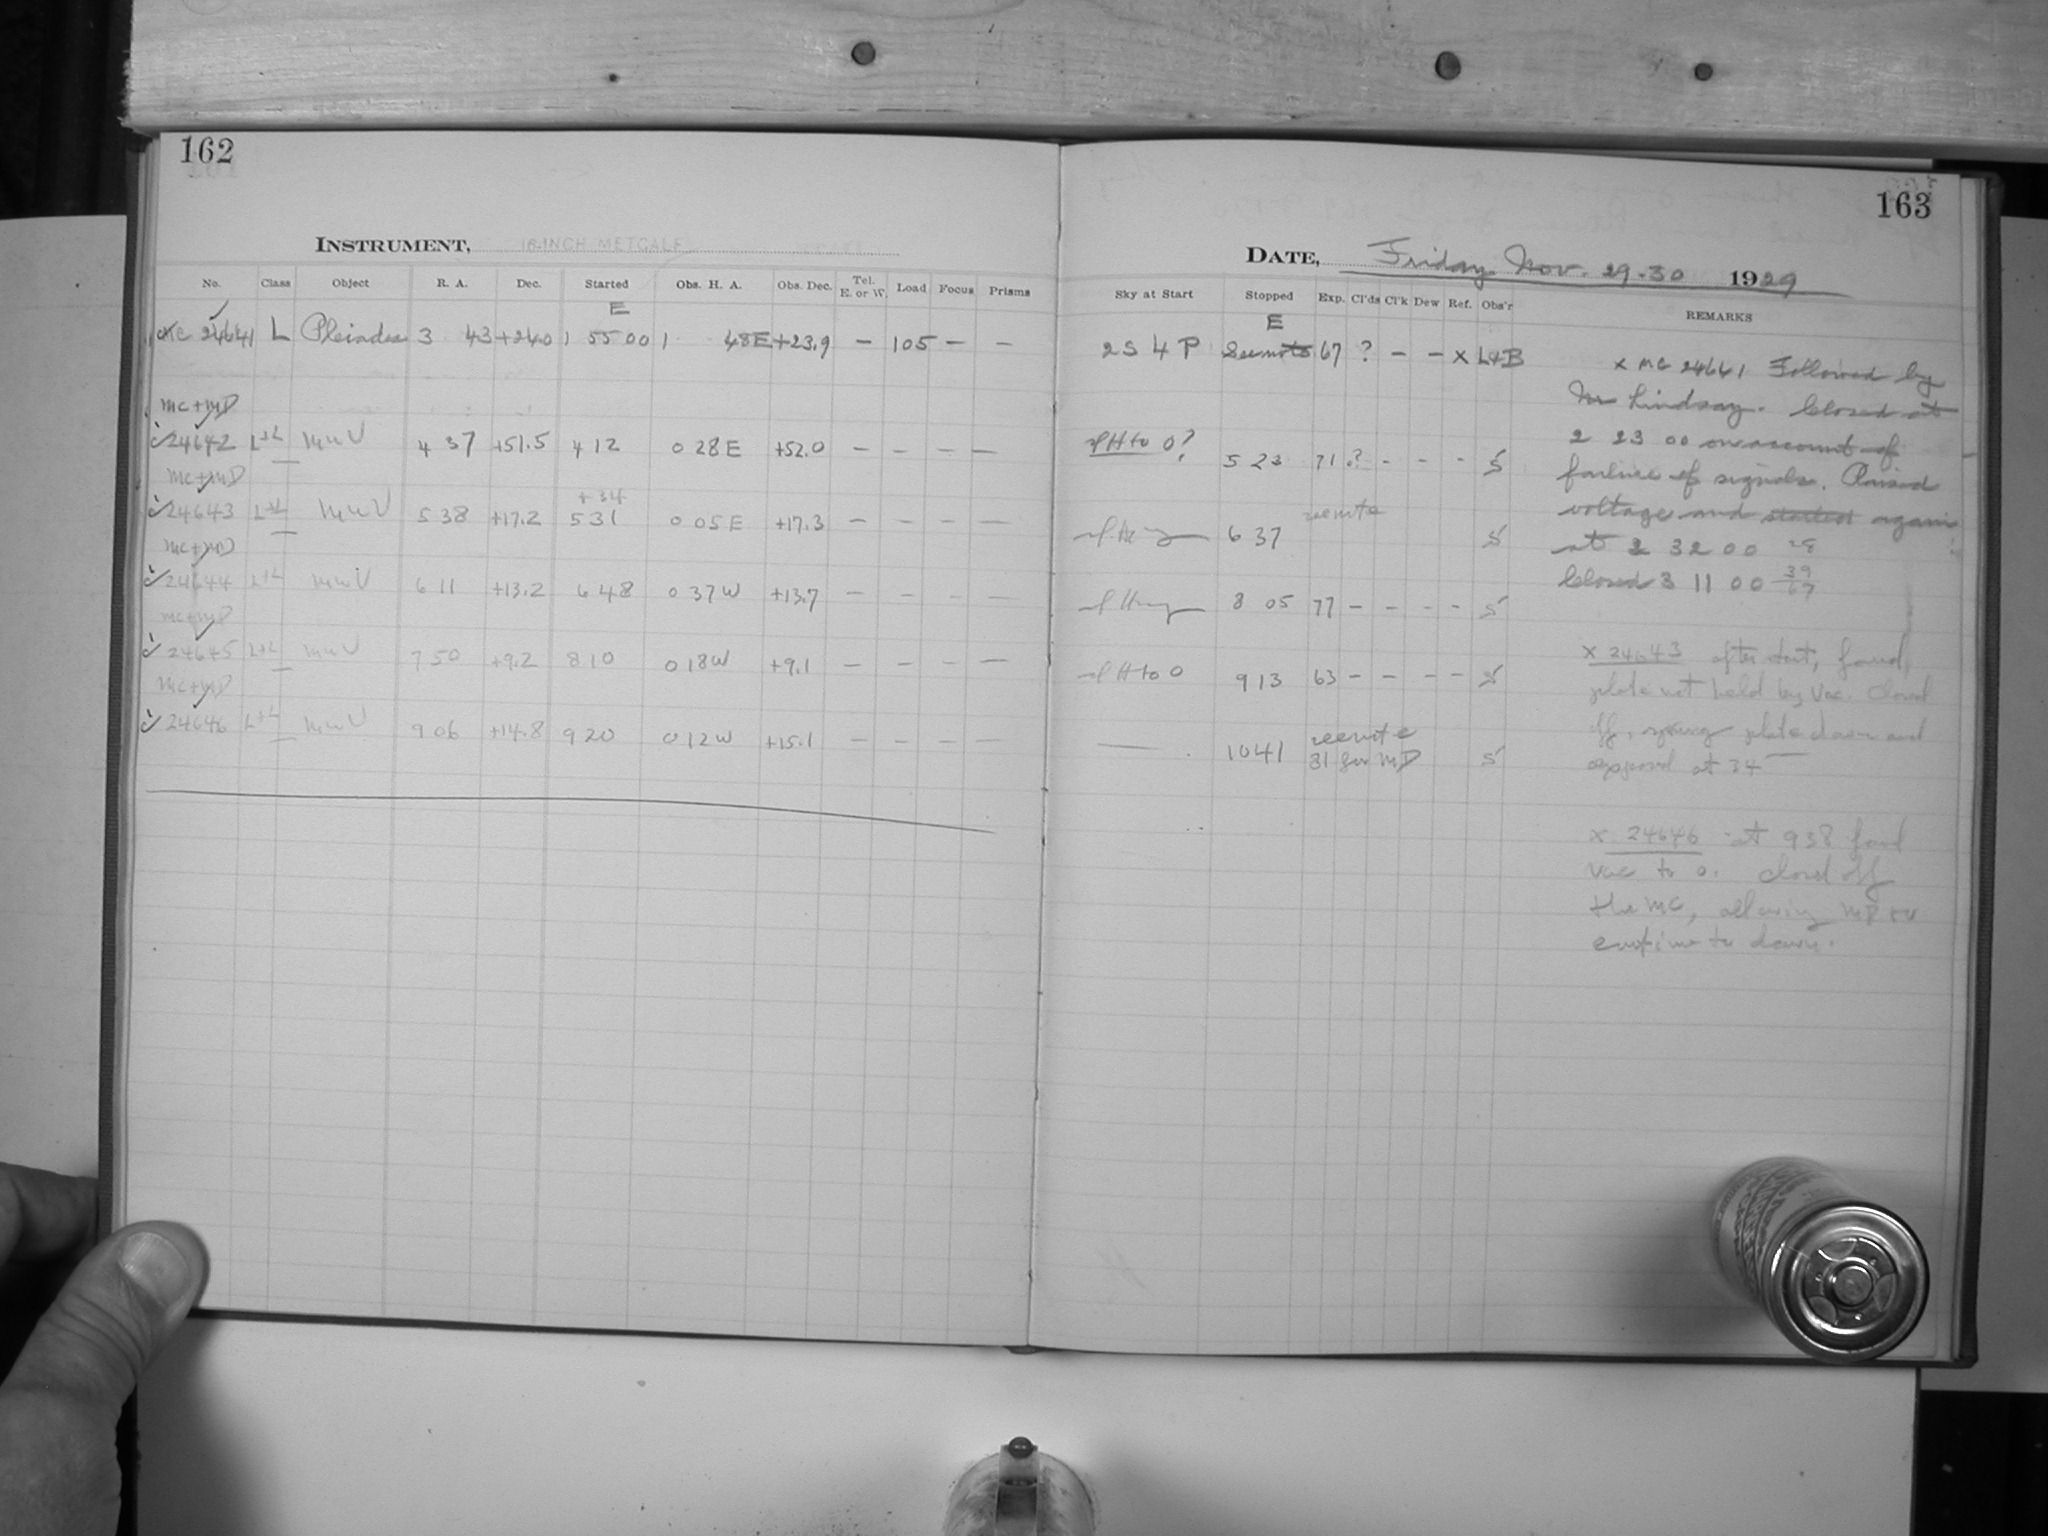 162
INSTRUMENT, 16-INCH METCALF
No. Class Object R. A. Dec. Started Obs. H. A. Obs. Dec. Tel. E. or W. Load Focus Prisms
E
MC 24641 L Pleiades 3 43 +24.0 1 55 00 1 48E +23.9 — 105 — —
MC+MD
24642 L+L 4 37 +51.5 4 12 0 28 E +52.0 — — — —
MC+MD
+34
24643 L+L 5 38 +17.2 5 31 0 05 E +17.3 — — — —
MC+MD
24644 L+L 6 11 +13.2 6 48 0 37 W +13.7 — — — —
MC+MD
24645 L+L 7 50 +9.2 8 10 0 18 W +9.1 — — — —
MC+MD
24646 L+L 9 06 +14.8 9 20 0 12 W +15.1 — — — —
163
DATE, Friday Nov. 29-30 1929
Sky at Start Stopped Exp. Cl'ds Cl'k Dew Ref. Obs'r REMARKS
E
2 S 4 P See note 67 ? — — x L+B
H to 0? 5 23 71 ? - - - S
see note
6 37 S
8 05 77 - - - - S
H to 0 9 13 63 - - - - S
10 41 see note S
81 for MD
x MC 24641 Followed by
Mr Lindsay. Closed at
2 23 00 on account of
failure of signals. Raised
voltage and started again
at 2 32 00 28
Closed 3 11 00 39
67
x 24643 after start, found
plate not held by vac. Closed
off, plate down and
exposed at 34
x 24646 at 938 found
vac to 0. closed off
the MC, allowing MD to
continue to dawn.